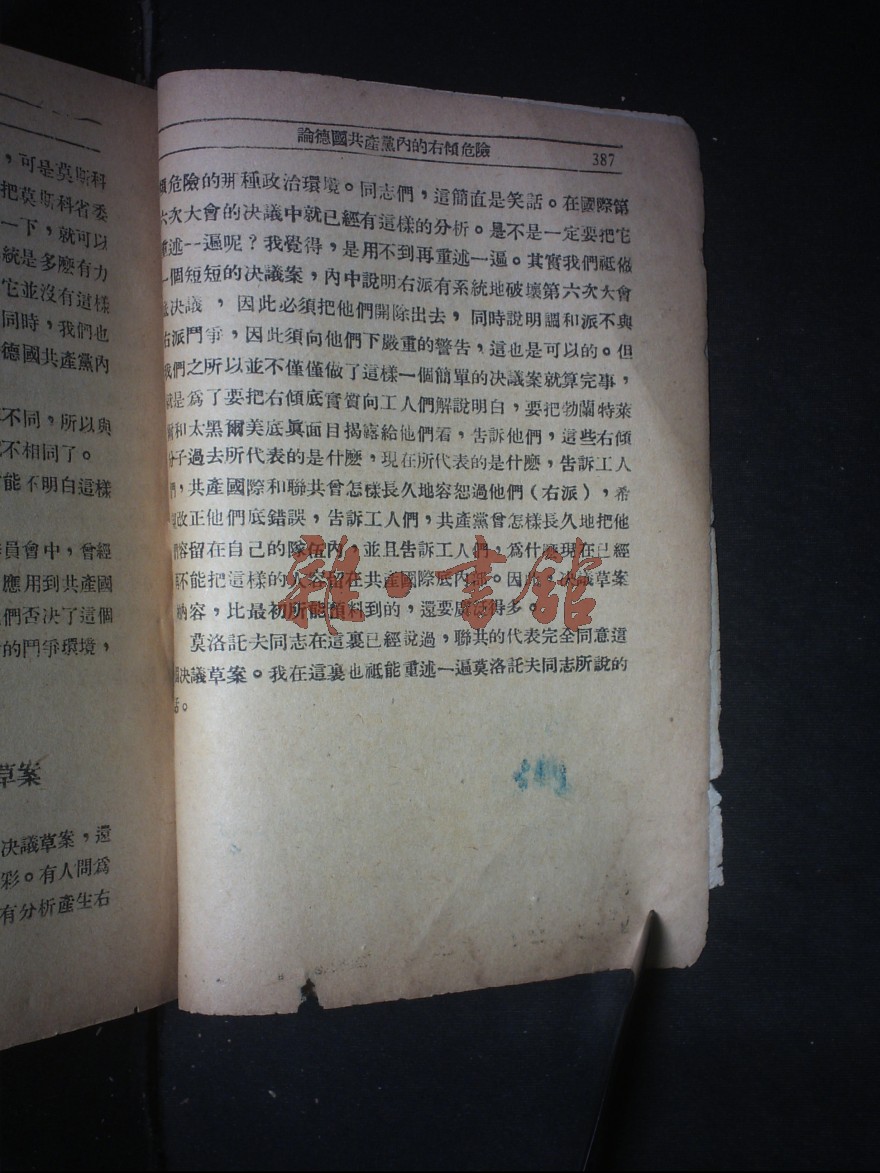 ，可是莫斯科
把莫斯科省委
一下，就可以
統是多麽有力
它並沒有這樣
同時，我們也
德國共產黨內
不同，所以與
不相同了。
能不明白這樣
員會中，曾經
應用到共產國
們否决了這個
的鬥爭環境，
草案
决議草案，還
彩。有人問爲
有分析產生右
論德國共產黨內的右傾危險
387
傾危險的那種政治環境。同志們，這簡直是笑話。在國際第
六次大會的决議中就已經有這樣的分析。是不是一定要把它
重述一遍呢？我覺得，是用不到再重述一遍。其實我們祗做
一個短短的决議案，內中說明右派有系統地破壞第六次大會
决議，因此必須把他們開除出去，同時說明調和派不與
右派鬥爭，因此須向他們下嚴重的警告，這也是可以的。但
我們之所以並不僅僅做了這樣一個簡單的决議案就算完事，
是爲了要把右傾底實質向工人們解說明白，要把勃蘭特萊
爾和太黑爾美底眞面目揭露給他們看，告訴他們，這些右傾
分子過去所代表的是什麽，現在所代表的是什麽，告訴工人
們，共產國際和聯共曾怎樣長久地容恕過他們（右派），希
望改正他們底錯誤，告訴工人們，共產黨曾怎樣長久地把他
們容留在自己的隊伍內，並且告訴工人們，爲什麽現在已經
再不能把這樣的人容留在共產國際底內部。因此，决議草案
內容，比最初所能預料到的，還要廣泛得多。
莫洛託夫同志在這裏已經說過，聯共的代表完全同意這
個决議草案。我在這裏也祗能重述一遍莫洛託夫同志所說的
話。
雜·書館